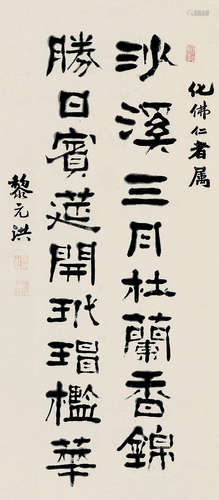 化佛仁者属
沙溪三月杜蘭香錦
勝日賓筵開玳瑁檻華
黎元洪